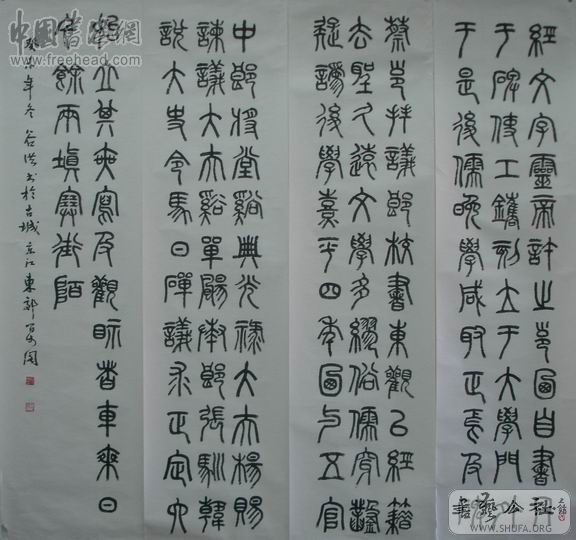 經文字靈帝許之邕因自書
于碑使工鐫刻立于大學門
于是後儒晚學咸取正焉及
蔡邕拜議郎校書東觀以經籍
去聖久遠文學多繆俗儒穿鑿
疑謬後學熹平四年因与五官
中郎將堂谿典光祿大夫楊賜
諫議大夫谿單颺議郎張馴韓
說大史令馬日磾議求正定六
始立其寫及觀眡者車乘日
千餘兩填塞街陌
癸未年冬谷洪书於古城京江東郭
中国书法網
www.freehead.com
書藝公社
WWW.SHUFA.ORG